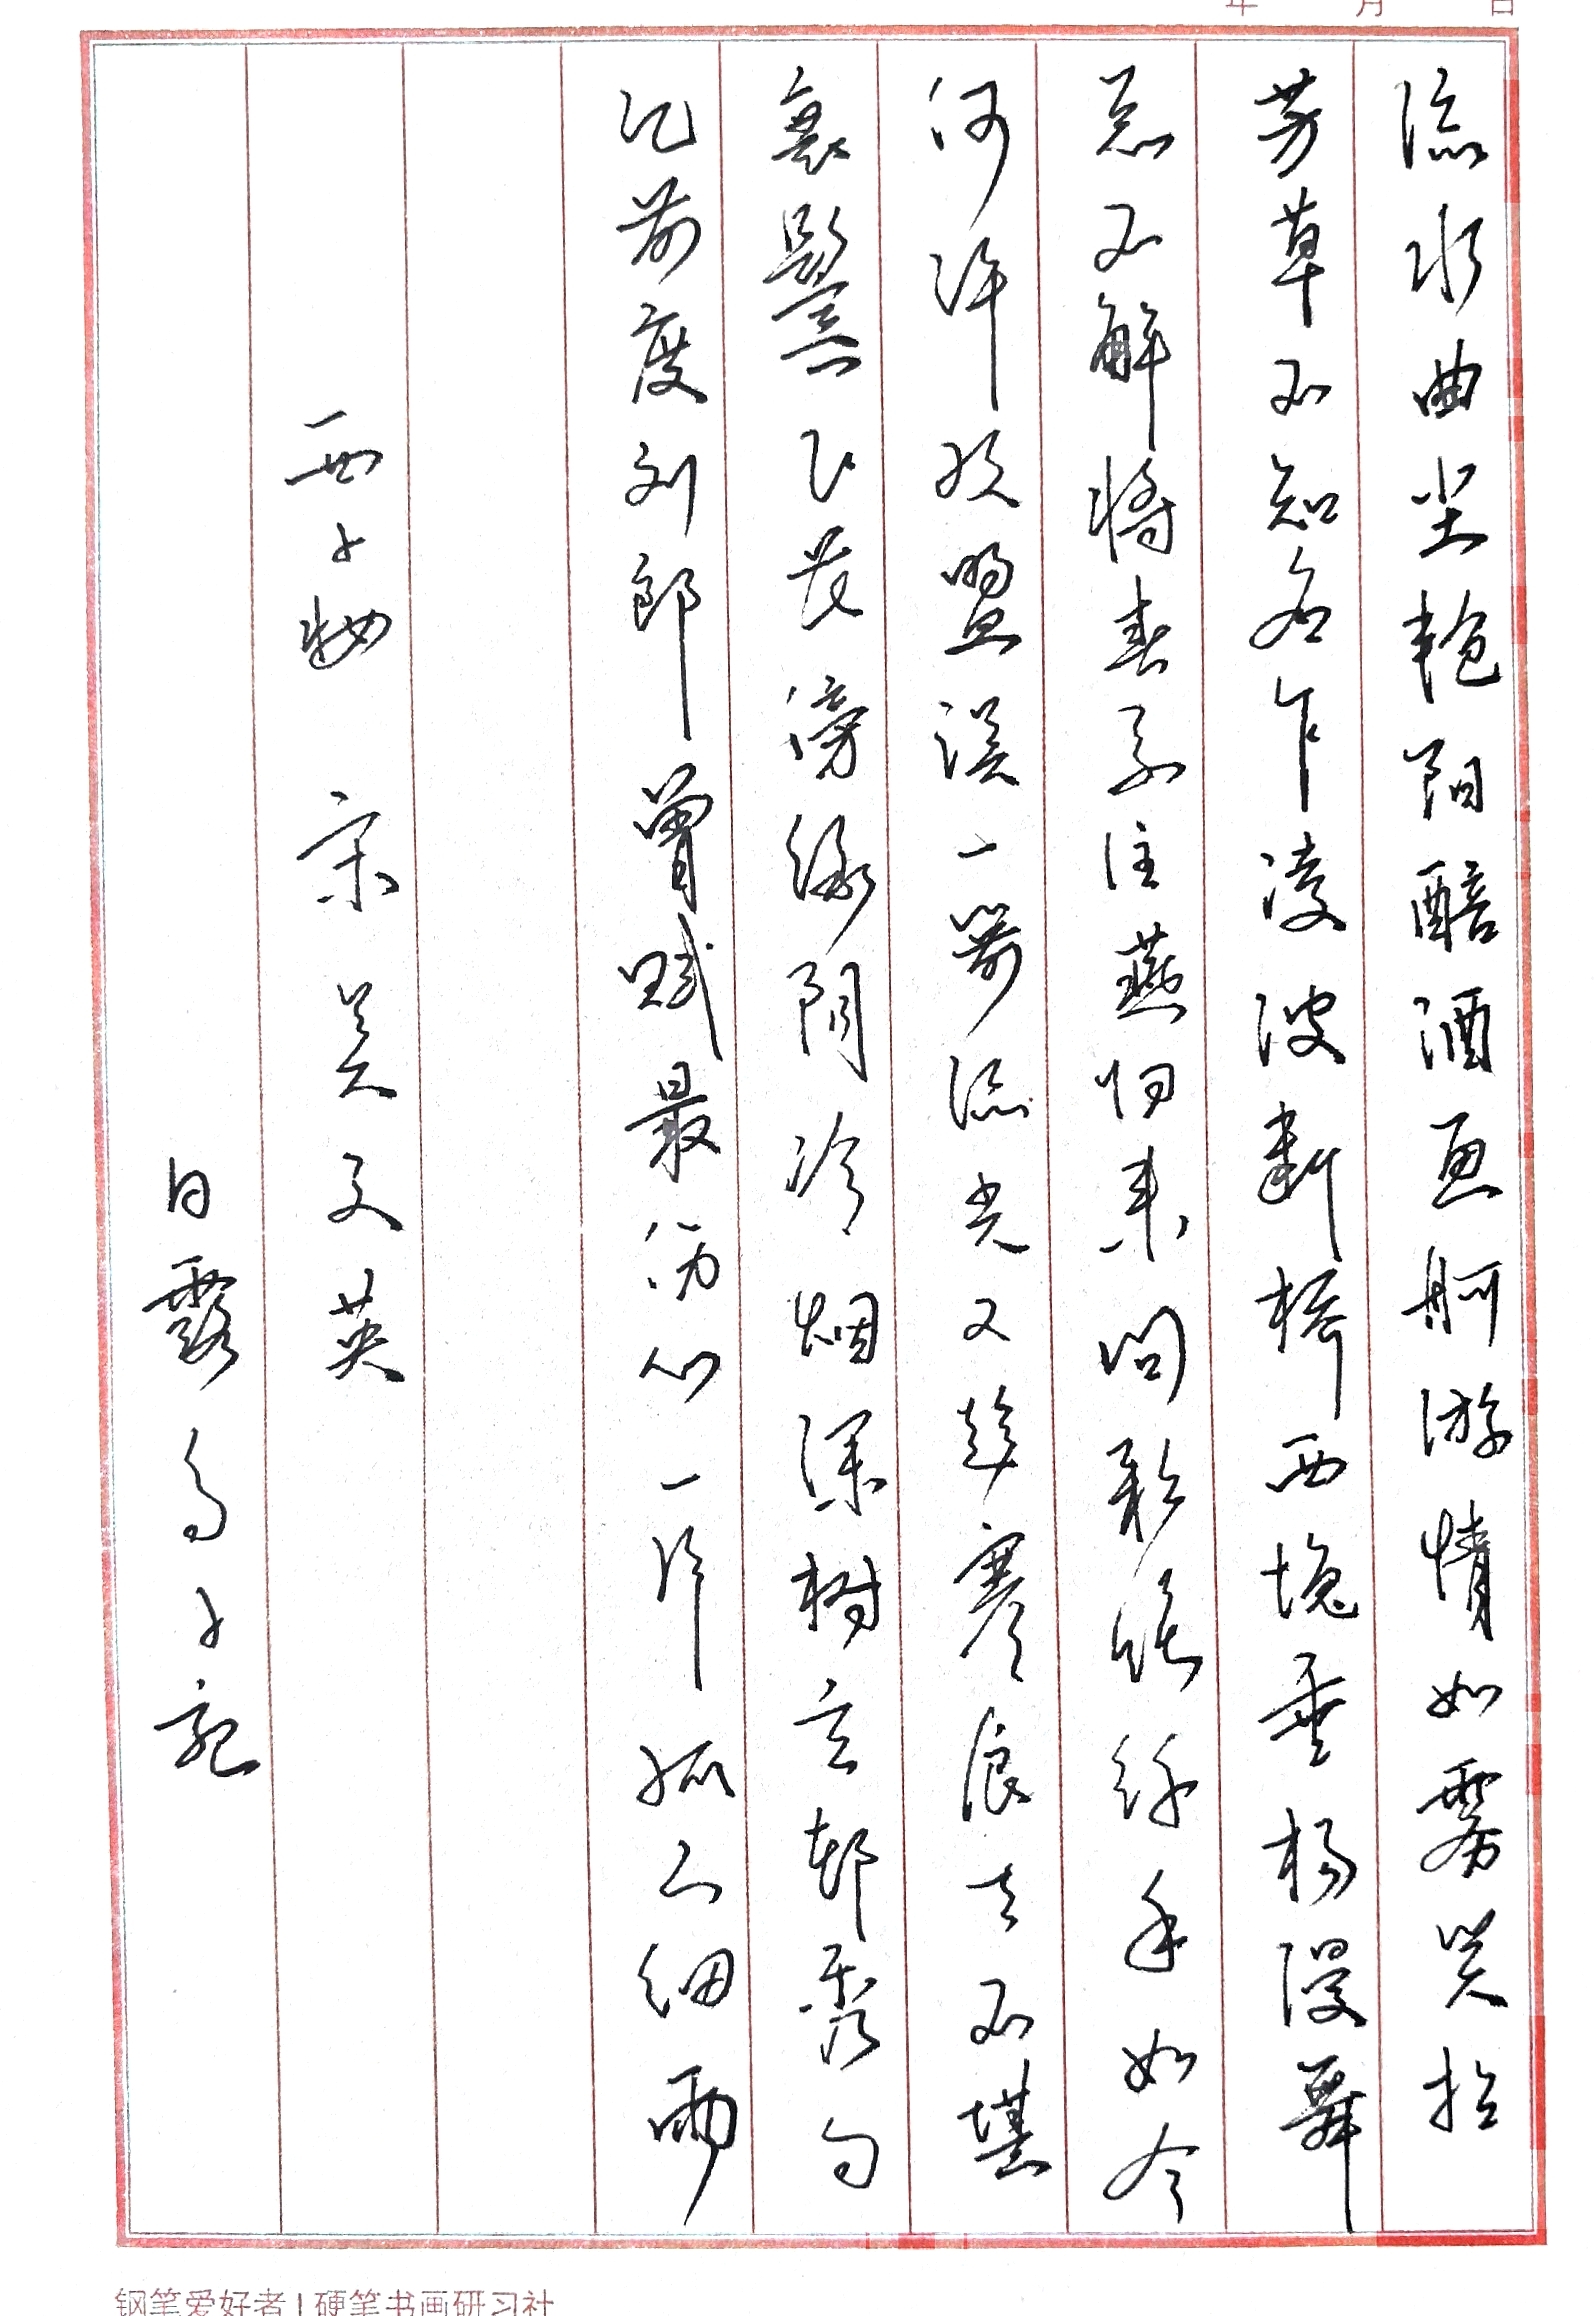 年 月 日
流水曲尘艳阳醅酒画舸游情如雾笑拈
芳草不知名乍凌波断桥西堍垂杨漫舞
总不解将春系住燕归来问彩绳纤手如今
何许欢盟误一箭流光又趁寒食去不堪
衰鬓飞花傍绿阴冷烟深树玄都秀句
记前度刘郎曾赋最伤心一片孤山细雨
西子妆 宋 吴文英
白露 子記
钢笔爱好者 | 硬笔书画研习社